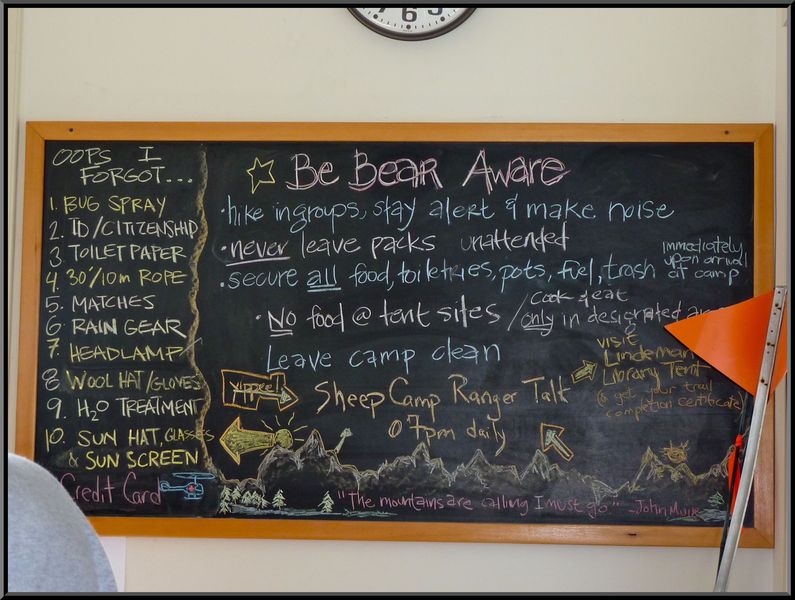 6
OOPS I
FORGOT...
1. BUG SPRAY
2. ID/CITIZENSHIP
3. TOILET PAPER
4. 30'/10m ROPE
5. MATCHES
6. RAIN GEAR
7. HEADLAMP
8. WOOL HAT/GLOVES
9. H2O TREATMENT
10. SUN HAT, GLASSES
& SUN SCREEN
Credit Card
Be BEAR AWARE
• hike in groups, stay alert & make noise
• never leave packs unattended
• secure all food, toiletries, pots, fuel, trash
immediately
upon arrival
at camp
• NO food @ tent sites / only in designated
cook & eat
Leave camp clean
Yippee!
Sheep Camp Ranger Talk
@ 7pm daily
visit
Lindeman
Library Tent
to get your trail
completion certificate
"The mountains are calling I must go" - John Muir